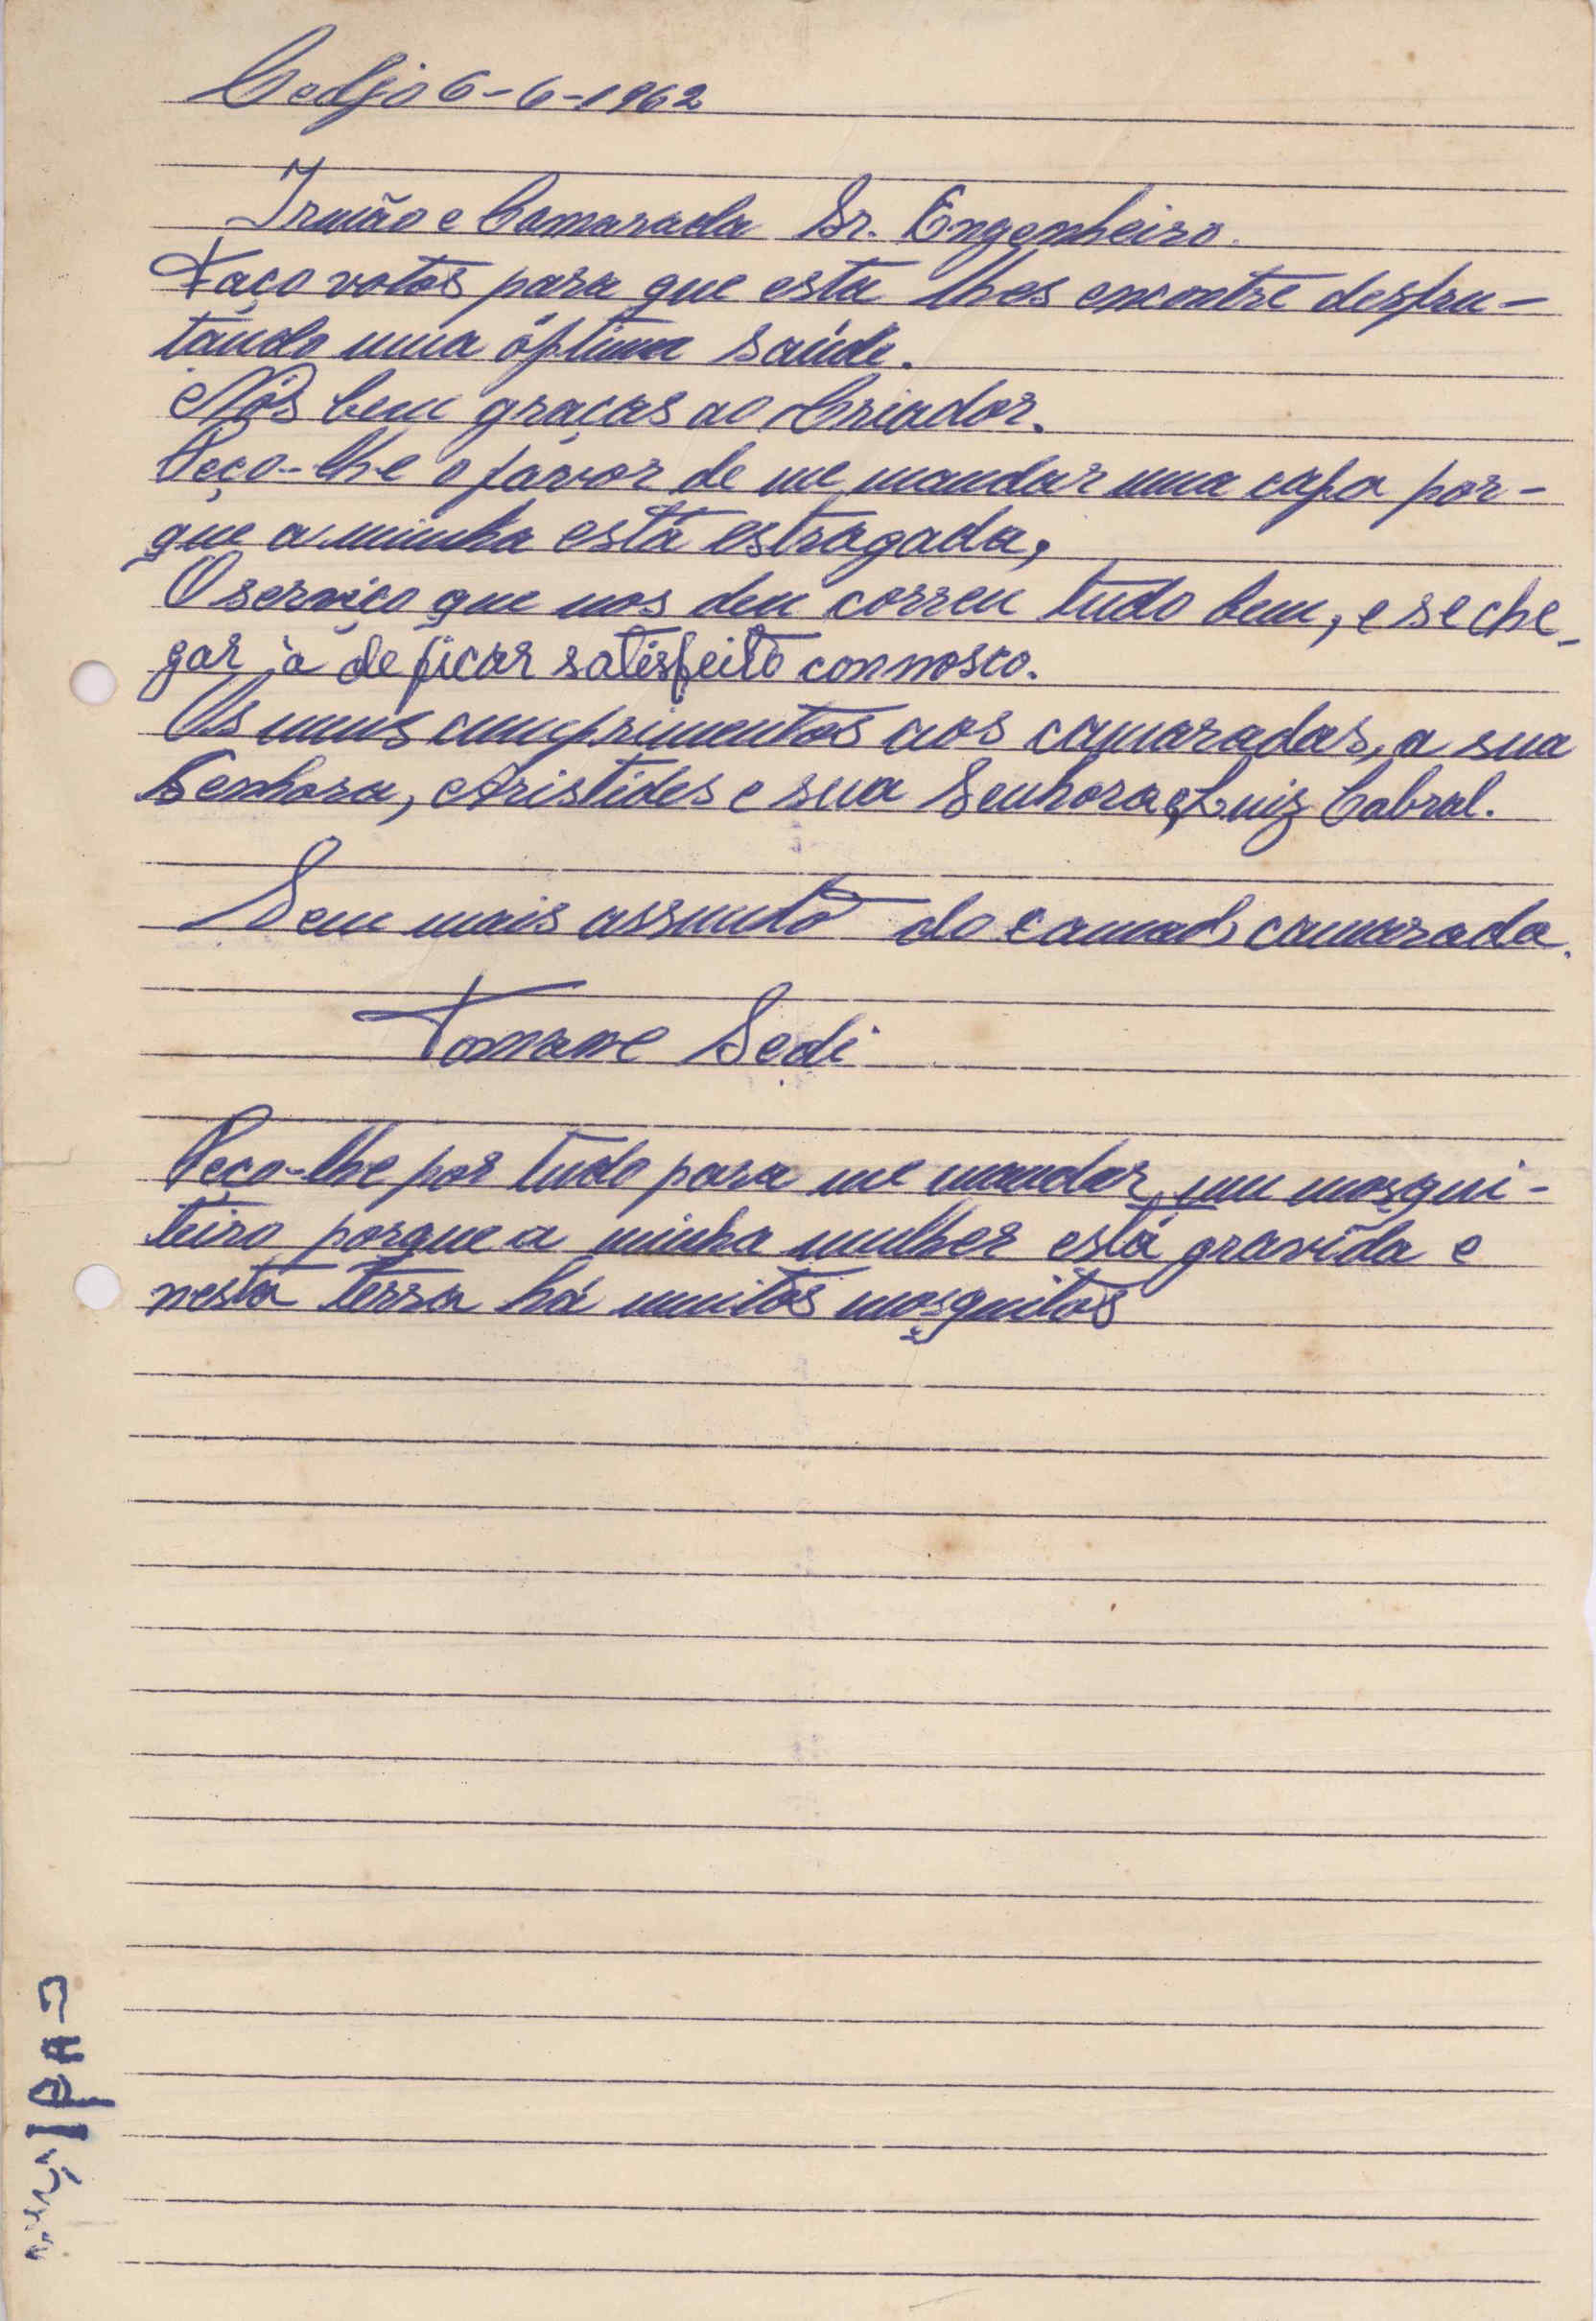 Cedjo 6-6-1962
Irmão e Camarada Sr. Engenheiro.
Faço votos para que esta lhes encontre desfru-
tando uma óptima saúde.
Nós bem graças ao Criador.
Peço-lhe o favor de me mandar uma capa por-
que a minha está estragada,
O serviço que nos deu correu tudo bem, e se che-
gar à de ficar satisfeito connosco.
Os meus cumprimentos aos camaradas, a sua
Senhora, Aristides e sua Senhora e Luiz Cabral.
Sem mais assunto do camad camarada.
Tomane Sedi
Peço-lhe por tudo para me mandar um mosqui-
teiro porque a minha mulher está gravída e
nesta terra há muitos mosquitos